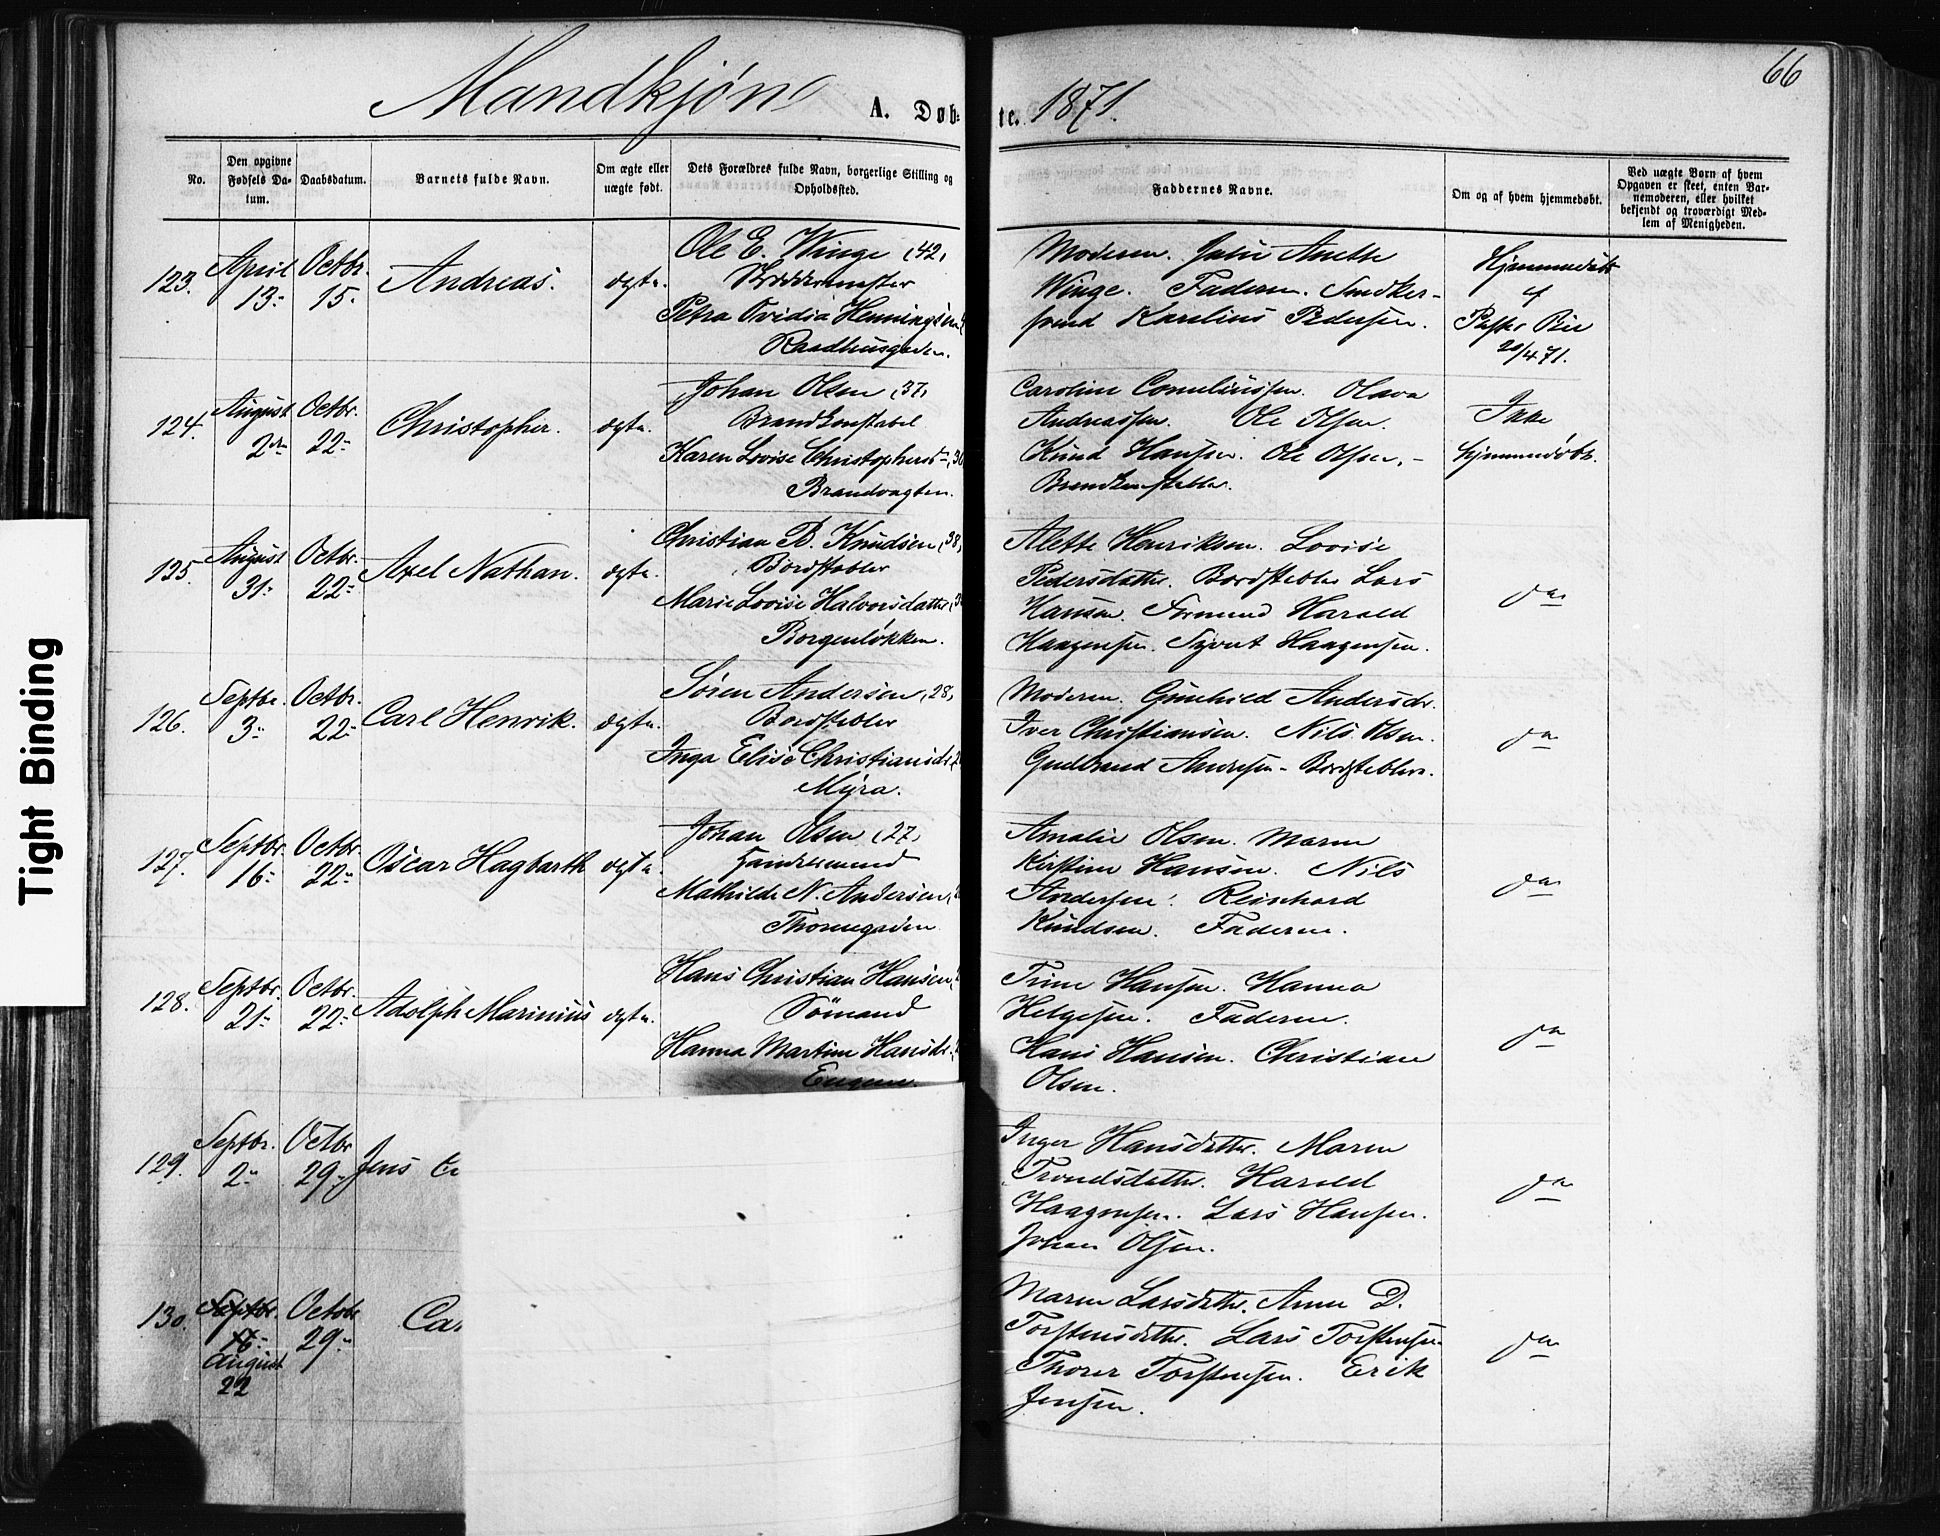 66
Mandkjøn A. Døb-te. 1871.
No.
Den opgivne
Fødsels Da-
tum.
Daabsdatum.
Barnets fulde Navn.
Om ægte eller
uægte født.
Dets Forældres fulde Navn, borgerlige Stilling og
Opholdssted.
Faddernes Navne.
Om og af hvem hjemmedøbt.
Ved uægte Børn af hvem
Opgaven er skeet, enten Bar-
nemoderen, eller hvilket
bekjendt og troværdigt Med-
lem af Menigheden.
123.
April
13-
Octbr.
15.
Andreas.
ægte.
Ole E. Winge (42)
Petra Ovidia Henningsen
Raadhusgaden.
Moderen. Anette
Winge. Faderen. Snedker-
svend Karelius Pedersen.
Hjemmedøbt
af
20/4 71.
124.
August
2den
Octbr.
22-
Christopher.
ægte.
Johan Olsen (37)
Brandkonstabel
Karen Lovise Christophersd
Brandvagten.
Caroline Corneliussen. Olava
Andreassen. Ole
Knud Hansen. Ole Olsen,-
Brandkonstabler.
Ikke
hjemmedøbt.
125.
August
31-
Octbr.
22-
Axel Nathan.
ægte.
Christian B. Knudsen (38)
Bordstabler
Marie Lovise Halvorsdatter
Borgenløkken.
Alette Henriksen. Lovise
Pedersdatter. Bordstabler Lars
Hansen. Formand Harald
Haagensen. Syvert Haagensen.
do
126.
Septbr.
3-
Octbr.
22-
Carl Henrik.
ægte.
Søren Andersen (28)
Bordstabler
Inga Elise Christiansd
Myra.
Moderen. Gunhild Andersdr.
Iver Christiansen. Nils Olsen.
Gudbrand Andersen - Bordstablere.
do
127.
Septbr.
16-
Octbr.
22-
Oscar Hagbarth
ægte.
Johan Olsen (27)
Mathilde N. Andersen
Thornegaden
Amalie Olsen. Maren
Kirstine Hansen. Nils
Andersen. Reinhard
Knudsen. Faderen.
do
128.
Septbr.
21-
Octbr.
22-
Adolph Marinius
ægte.
Hans Christian Hansen
Sømand
Hanna Martine Hansdr.
Engene.
Trine Hansen. Hanna
Helgesen. Faderen.
Hans Hansen. Christian
Olsen.
do
129.
Septbr.
2-
Octbr
29-
Jens
Inger Hansdatter. Maren
Trondsdatter. Harald
Haagensen. Lars Hansen.
Johan Olsen.
do
130.
Septbr.
August
22
Octobr
29-
Ca
Maren Larsdatter. Anne D.
Torstensdatter. Lars Torstensen
Thorer Torstensen. Erik
Jensen.
do
Tight Binding